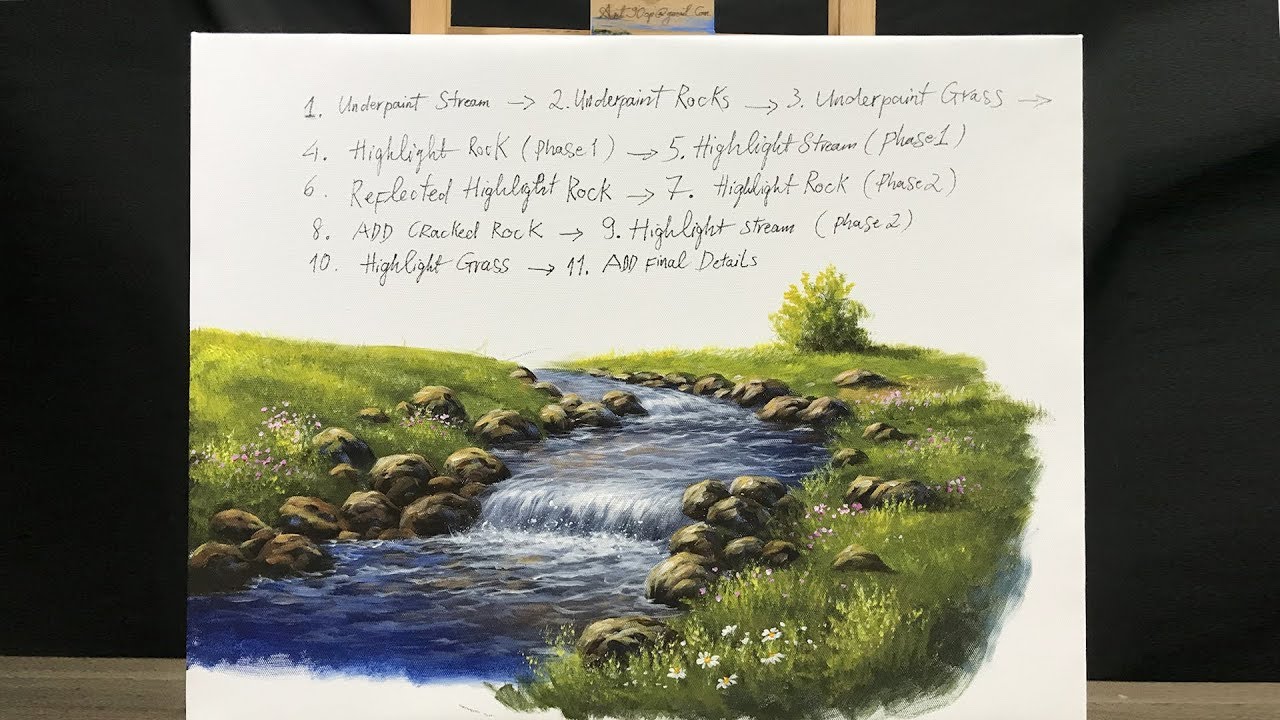 1. Underpaint Stream → 2. Underpaint Rocks → 3. Underpaint Grass →
4. Highlight Rock (phase1) → 5. Highlight Stream (phase1)
6. Reflected Highlight Rock → 7. Highlight Rock (phase2)
8. ADD CRacked Rock → 9. Highlight stream (phase2)
10. Highlight Grass → 11. ADD Final Details